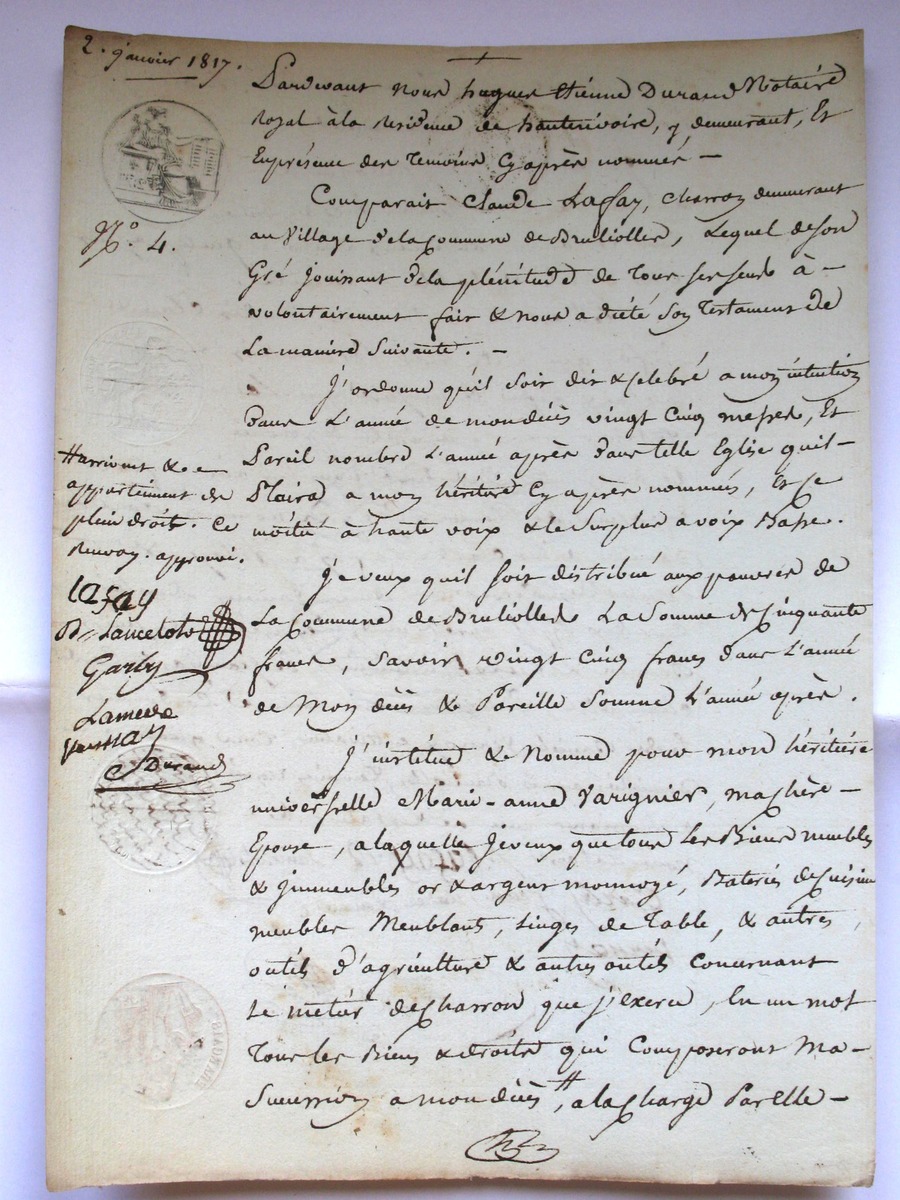 2. janvier 1817.
N.º 4.
Pardevant nous hugues Etienne Durand Notaire
royal à la residence de hauterivoire, y demeurant, Et
En présence des temoins cy après nommés —
Comparait Claude Laffay, charron demeurant
au village de la Commune de Brullioles, Lequel de son
Gré jouissant de la plénitude de tous ses sens à —
volontairement fait & nous a dicté son testament de
La maniere suivante. —
J'ordonne qu'il soit dit & celebré a mon intention
dans L'année de mon décès vingt cinq messes, Et
Pareil nombre L'année après dans telle Eglise qu'il —
Plaira a mon héritiere cy après nommée, Et ce
moitié à haute voix & le surplus a voix Basse.
Je veux qu'il soit distribué aux pauvres de
La Commune de Brullioles La Somme de Cinquante
francs, Savoir vingt Cinq francs dans L'année
de Mon décès & Pareille Somme L'année après.
J'institue & Nomme pour mon héritiere
universelle Marie-anne Varignier, ma chère —
Epouse, a laquelle je veux que tous les Biens meubles
& jmmeubles or & argent monnoyé, Bateries de Cuisine
meubles Meublants, Linges de Table, & autres,
outils d'agriculture & autres outils Concernant
Le metier de Charron que j'exerce, En un mot
Tous les Biens & droits qui Composeront Ma —
Succession a mon décès #, a la charge Par Elle —
# arrivent & lui
appartiennent de
plein droit. Ce
Renvoy. approuvé.
lafay
Lancelot
Durand
BIADELAMES